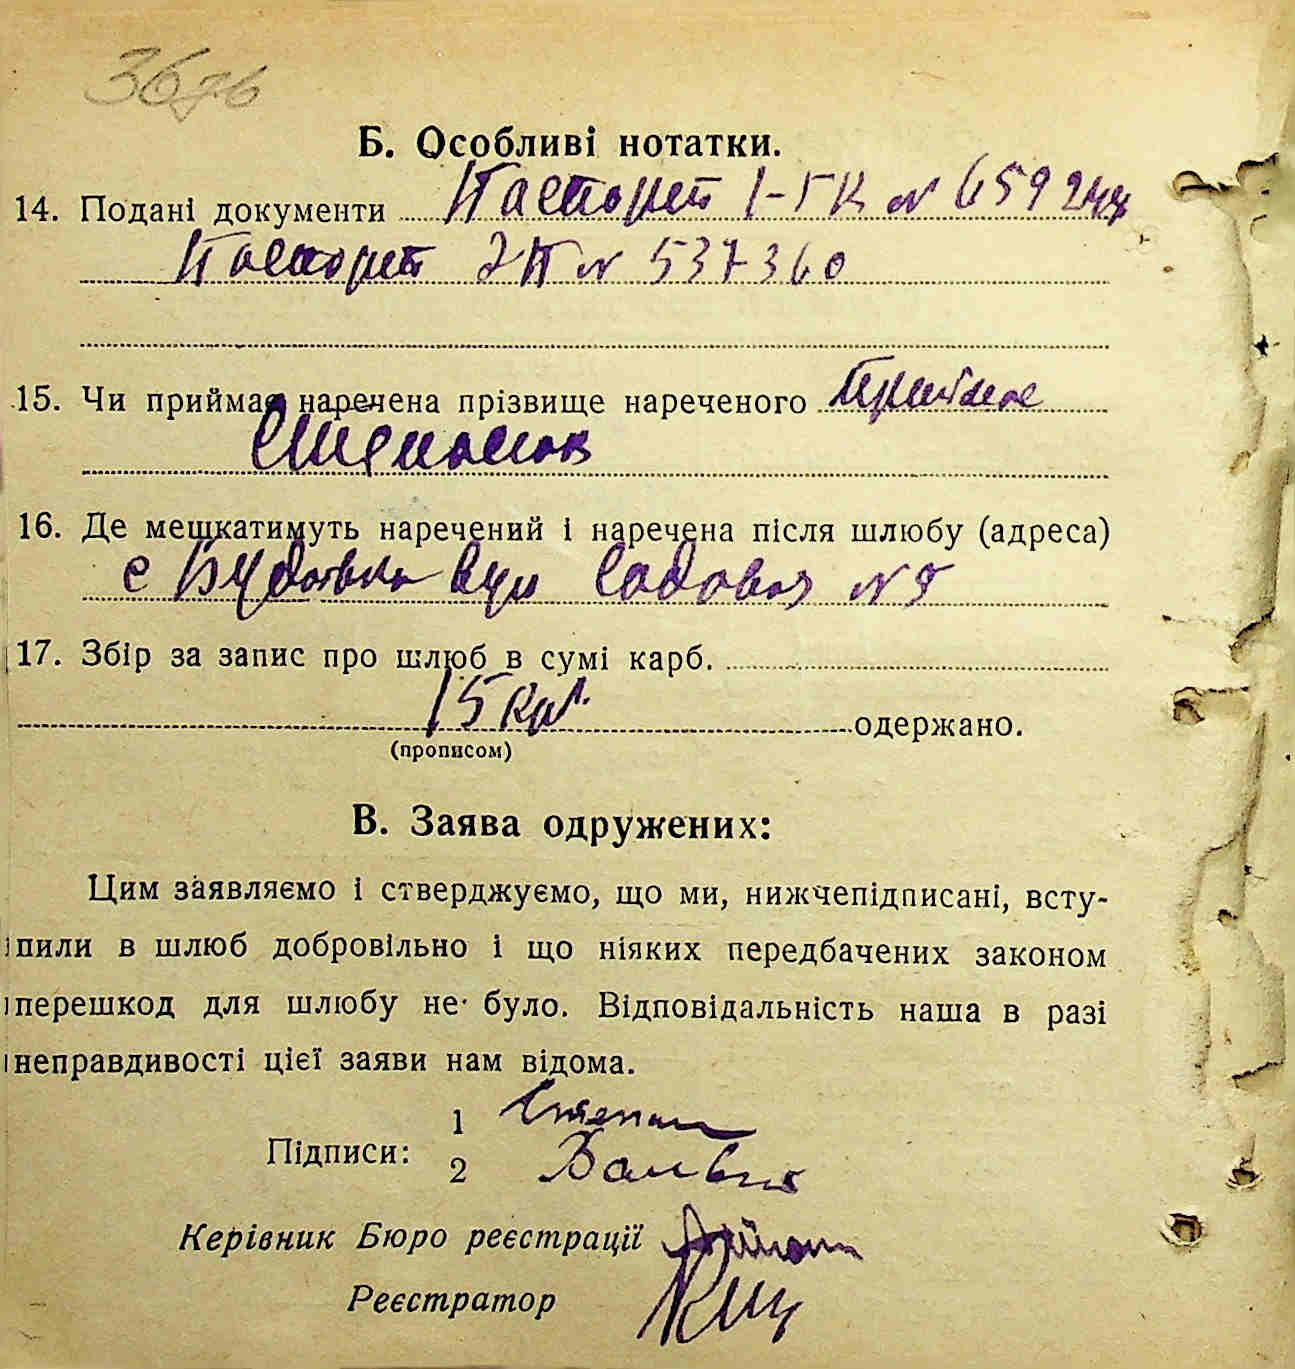 367в
Б. Особливі нотатки.
14. Подані документи Паспорт 1-ГК № 659244
Паспорт 2П № 537360
15. Чи приймає наречена прізвище нареченого приймає
16. Де мешкатимуть наречений і наречена після шлюбу (адреса)
с Будовка вул Садовая № 5
17. Збір за запис про шлюб в сумі карб.
15 кар. одержано.
(прописом)
В. Заява одружених:
Цим заявляємо і стверджуємо, що ми, нижчепідписані, всту-
пили в шлюб добровільно і що ніяких передбачених законом
перешкод для шлюбу не було. Відповідальність наша в разі
неправдивості цієї заяви нам відома.
1
Підписи:
2
Керівник Бюро реєстрації
Реєстратор